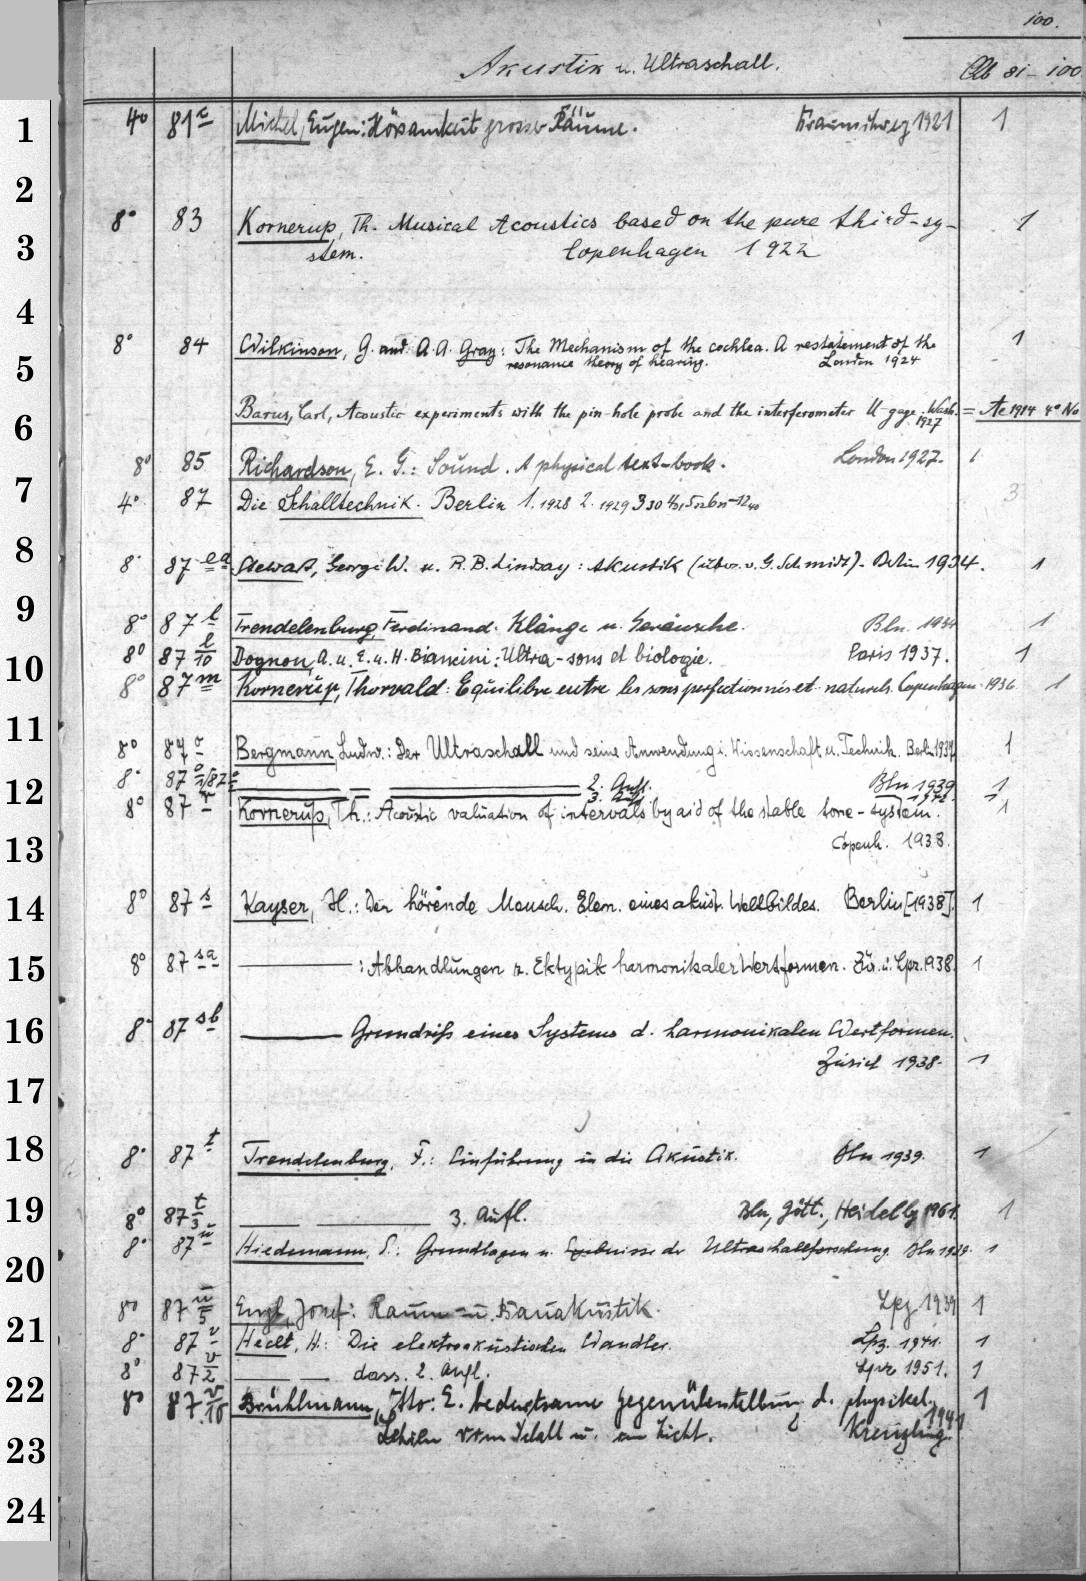 100.
Akustik u. Ultraschall. Ab 81-100
1 4° 81c Michel, Eugen: Hörsamkeit grosser Räume. Braunschweig 1921 1
2
8° 83 Kornerup, Th. Musical Acoustics based on the pure third-sy- 1
3 stem. Copenhagen 1922
4
8° 84 Wilkinson, G. and A.A. Gray: The Mechanism of the cochlea. A restatement of the 1
5 resonance theory of hearing. London 1924
6 Barus, Carl, Acoustic experiments with the pin-hole probe and the interferometer U-gage. Wash. 1927 = Ae 1914 4° No
8° 85 Richardson, E. G.: Sound. A physical text-book. London 1927. 1
7 4° 87 Die Schalltechnik. Berlin 1. 1928 2. 1929 3 30 3
8 8° 87 ea Stewart, George W. u. R.B. Lindsay: Akustik (übers. v. G. Schmidt). Berlin 1934. 1
9 8° 87 l Trendelenburg, Ferdinand. Klänge u. Geräusche. Bln. 1934 1
10 8° 87 l/10 Dognon, A. u. E. u. H. Biancini: Ultra-sons et biologie. Paris 1937. 1
8° 87 m Kornerup, Thorvald: Equilibre entre les sons perfectionnés et naturels. Copenhagen 1936 1
11
8° 87 o Bergmann, Ludw.: Der Ultraschall und seine Anwendung i. Wissenschaft u. Technik. Berlin 1937 1
12 8° 87 2. Aufl. Bln 1939 1
3. Aufl.
8° 87 r Kornerup, Th.: Acoustic valuation of intervals by aid of the stable tone-system. 1
13 Copenh. 1938.
14 8° 87 s Kayser, H.: Der hörende Mensch. Elem. eines akust. Weltbildes. Berlin [1938]. 1
15 8° 87 sa : Abhandlungen z. Ektypik harmonikaler Wertformen. Zür. u. Lpz. 1938. 1
16 8° 87 sb Grundriß eines Systems d. harmonikalen Wertformen.
Zürich 1938. 1
17
18 8° 87 t Trendelenburg, F.: Einführung in die Akustik. Bln 1939. 1
19 8° 87 t/3 3. Aufl. Bln, Gött., Heidelbg 1961. 1
8° 87 u Hiedemann, E.: Grundlagen u. Ergebnisse der Ultraschallforschung. Bln 1939. 1
20
8° 87 u/5 Engl, Josef: Raum- u. Bauakustik. Lpzg 1939 1
21 8° 87 v Hecht, H.: Die elektroakustischen Wandler. Lpz. 1941. 1
8° 87 v/2 dass. 2. Aufl. Lpz 1951. 1
22 8° 87 v/10 Brühlmann, Otto: E. bedeutsame Gegenüberstellung d. physikal. 1
23 Lehren vom Schall u. vom Licht. Kreuzling. 1941
24